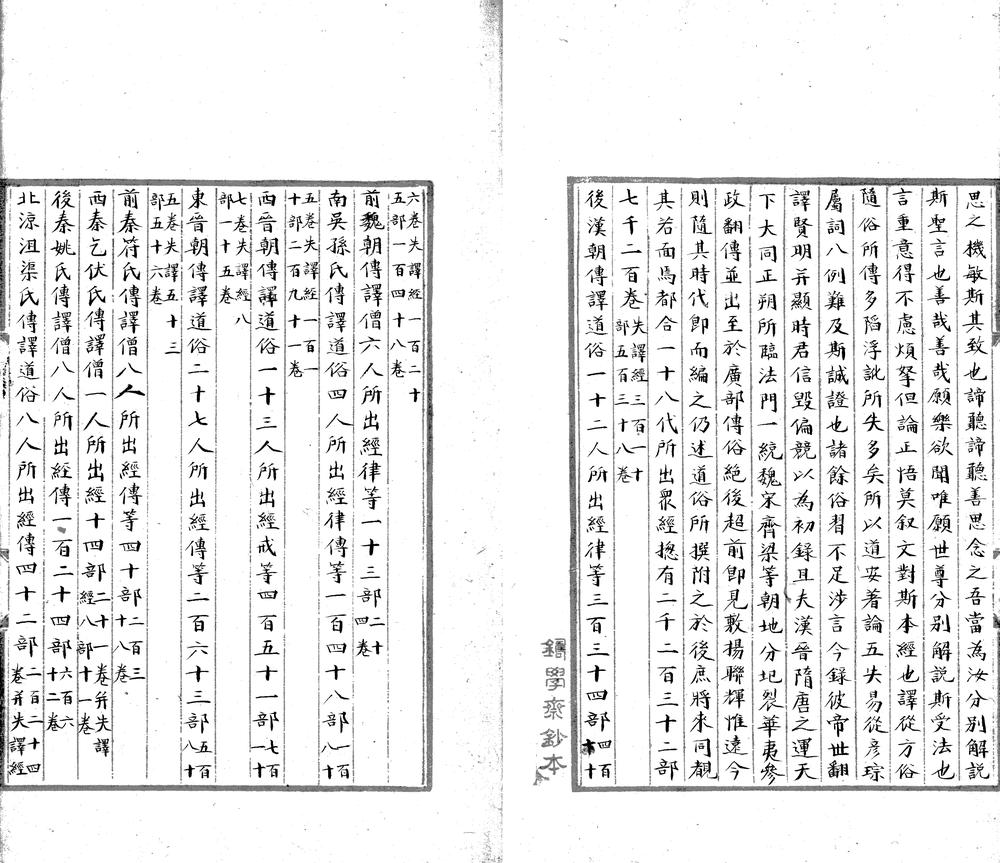 思之機敏斯其致也諦聽諦聽善思念之吾當為汝分別解說
斯聖言也善哉善哉願樂欲聞唯願世尊分別解說斯受法也
言重意得不慮煩拏但論正悟莫叙文對斯本經也譯從方俗
隨俗所傳多陷浮訛所失多矣所以道安著論五失易從彥琮
屬詞八例難及斯誠證也諸餘俗習不足涉言今錄彼帝世翻
譯賢明并顯時君信毀偏競以為初錄且夫漢晉隋唐之運天
下大同正朔所臨法門一統魏宋齊梁等朝地分圮裂華夷參
政翻傳並出至於廣部傳俗絕後超前即見敷揚聯輝惟遠今
則隨其時代即而編之仍述道俗所撰附之於後庶將來同覩
其若面焉都合一十八代所出眾經摠有二千二百三十二部
七千二百卷失譯經三百一十部五百三十八卷
後漢朝傳譯道俗一十二人所出經律等三百三十四部四百十
學齋鈔本
六卷失譯經一百二十五部一百四十八卷
前魏朝傳譯僧六人所出經律等一十三部二十四卷
南吳孫氏傳譯道俗四人所出經律傳等一百四十八部一百一十
五卷失譯經一百一十部二百九十一卷
西晉朝傳譯道俗一十三人所出經戒等四百五十一部七百一十
七卷失譯經八部一十五卷
東晉朝傳譯道俗二十七人所出經傳等二百六十三部五百八十
五卷失譯五十三部五十六卷
前秦苻氏傳譯僧八人所出經傳等四十部二百三十八卷
西秦乞伏氏傳譯僧一人所出經十四部二十一卷并失譯經八部十一卷
後秦姚氏傳譯僧八人所出經傳一百二十四部六百六十二卷
北涼沮渠氏傳譯道俗八人所出經傳四十二部二百二十四卷并失譯經